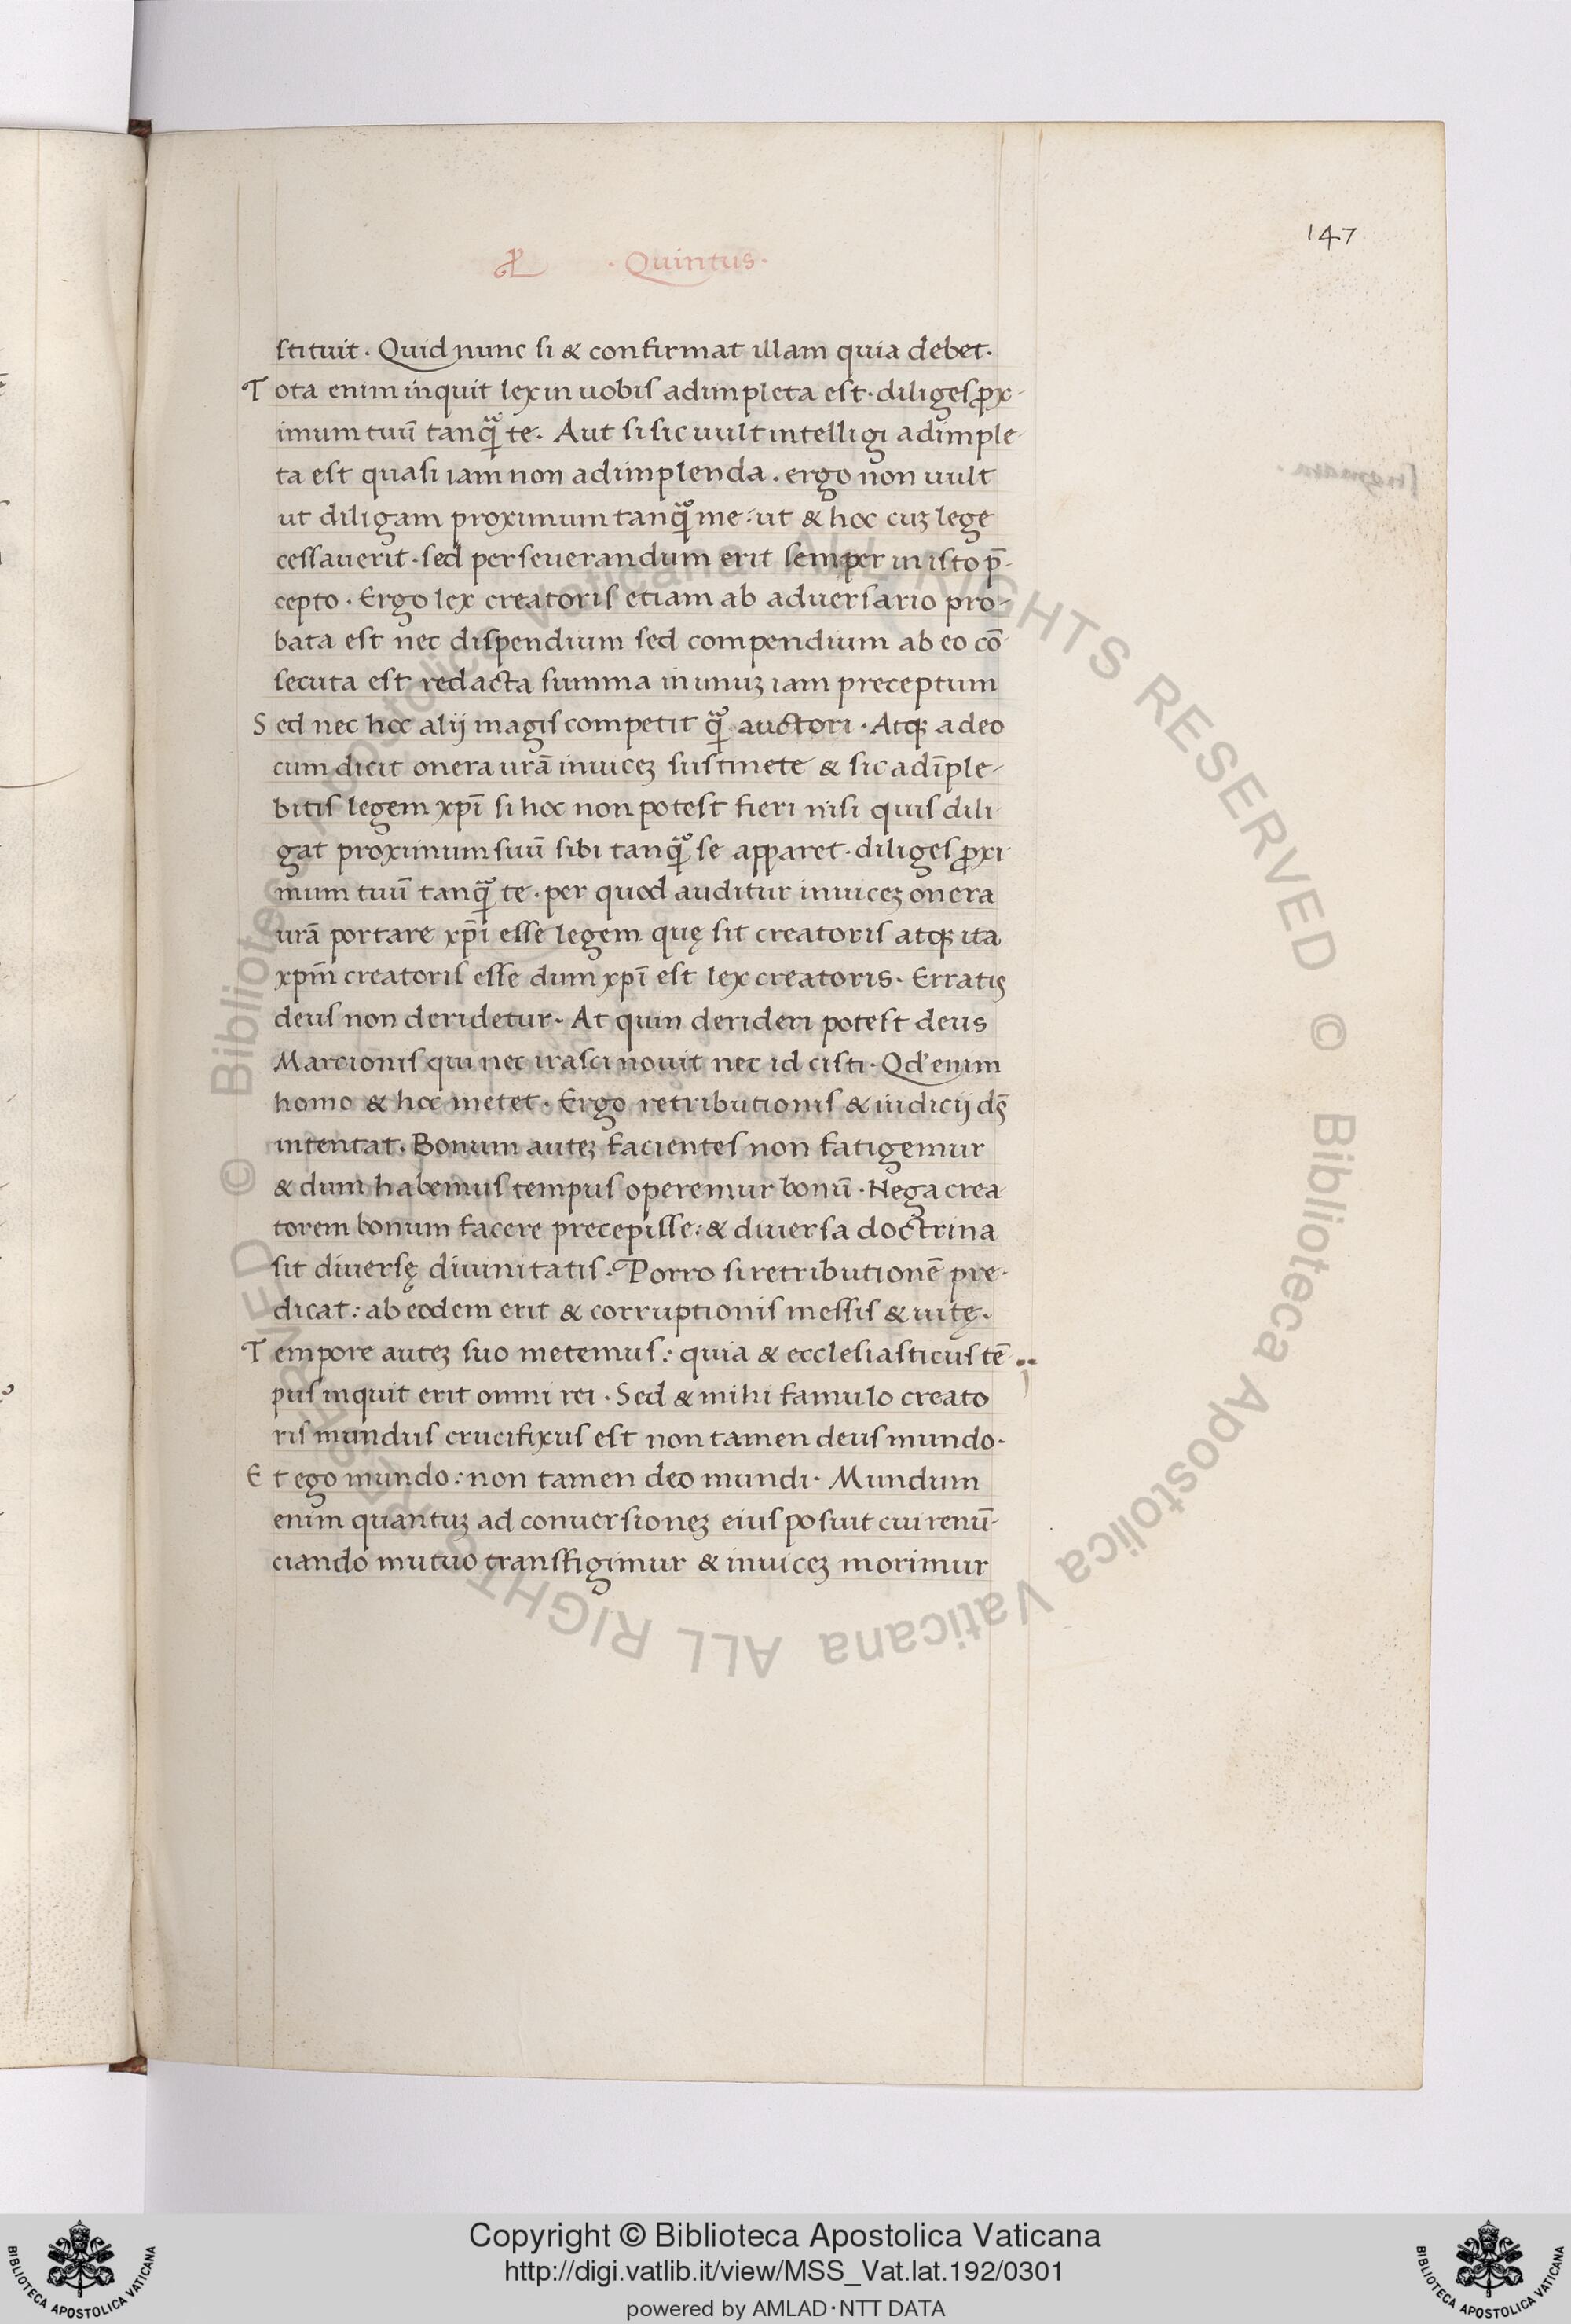 147
· Quintus ·
stituit · Quid nunc si & confirmat illam quia debet ·
Tota enim inquit lex in uobis adimpleta est · diliges ꝓx-
imum tuū tanq̈ te · Aut si sic uult intelligi adimple-
ta est quasi iam non adimplenda · ergo non uult
ut diligam proximum tanq̈ me · ut & hoc cuꝫ lege
cessauerit · sed perseuerandum erit semper in isto p̄-
cepto · Ergo lex creatoris etiam ab aduersario pro-
bata est nec dispendium sed compendium ab eo cō-
secuta est redacta summa in unuꝫ iam preceptum
Sed nec hoc alij magis competit q̈ auctori · Atqꝫ adeo
cum dicit onera urā inuiceꝫ sustinete & sic adīple-
bitis legem xp̄i si hoc non potest fieri nisi quis dili
gat proximum suū sibi tanq̈ se apparet · diliges ꝓxi
mum tuū tanq̈ te · per quod auditur inuiceꝫ onera
urā portare xp̄i esse legem quę sit creatoris atqꝫ ita
xp̄m creatoris esse dum xp̄i est lex creatoris · Erratis
deus non deridetur · At quin derideri potest deus
Marcionis qui nec irasci nouit nec id cisti · Qđ enim
homo & hoc metet · Ergo retributionis & iudicij ds̄
intentat · Bonum auteꝫ facientes non fatigemur
& dum habemus tempus operemur bonū · Nega crea
torem bonum facere precepisse : & diuersa doctrina
sit diuersę diuinitatis · Porro si retributionē pre-
dicat : ab eodem erit & corruptionis messis & uitę ·
Tempore auteꝫ suo metemus : quia & ecclesiasticus tē
pus inquit erit omni rei · Sed & mihi famulo creato
ris mundus crucifixus est non tamen deus mundo ·
Et ego mundo : non tamen deo mundi · Mundum
enim quantuꝫ ad conuersioneꝫ eius posuit cui renū-
ciando mutuo transfigimur & inuiceꝫ morimur
© Biblioteca Apostolica Vaticana ALL RIGHTS RESERVED © Biblioteca Apostolica Vaticana ALL RIGHTS RESERVED
BIBLIOTECA APOSTOLICA VATICANA
Copyright © Biblioteca Apostolica Vaticana
http://digi.vatlib.it/view/MSS_Vat.lat.192/0301
powered by AMLAD·NTT DATA
BIBLIOTECA APOSTOLICA VATICANA